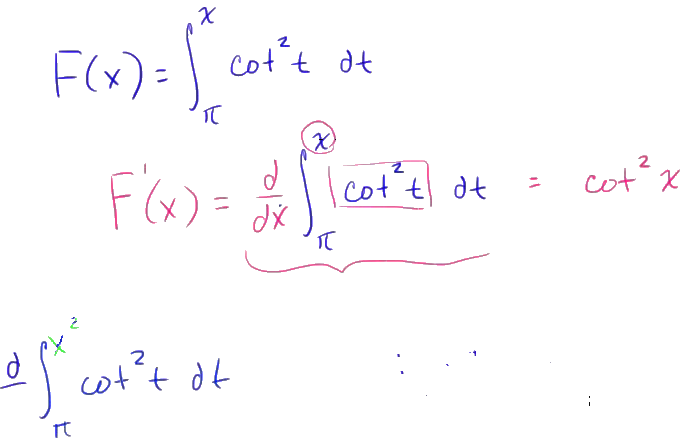 F(x) = ∫_π^x cot²t dt
F'(x) = d/dx ∫_π^x cot²t dt = cot² x
d ∫_π^{x²} cot²t dt